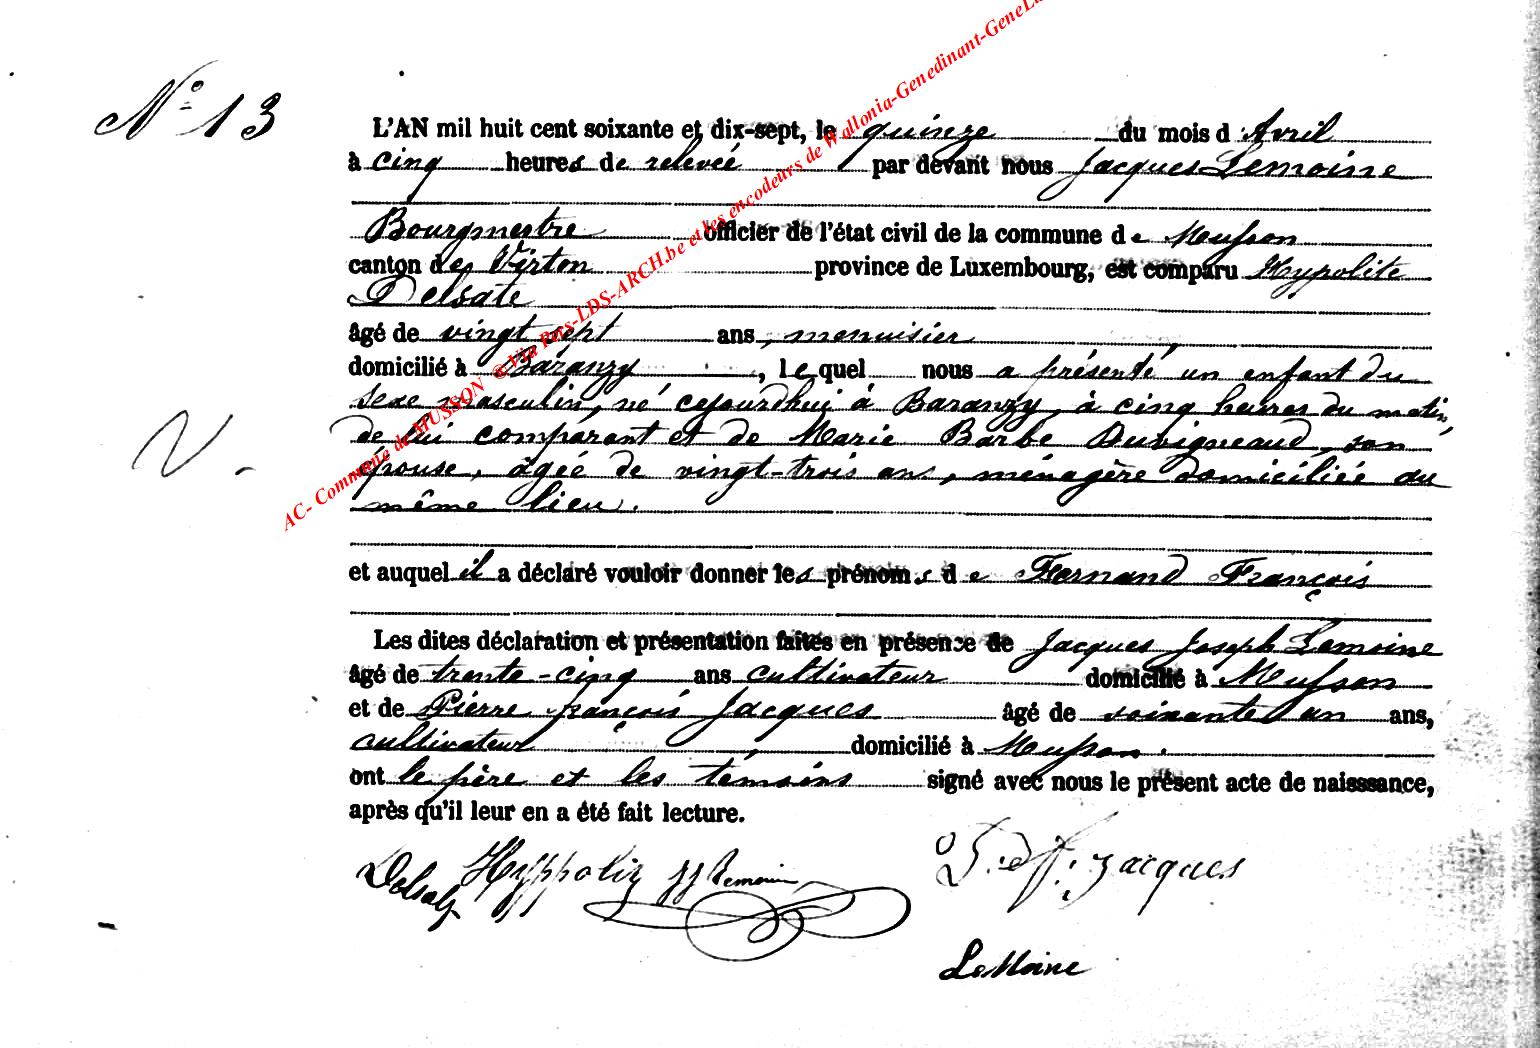 N° 13
L'AN mil huit cent soixante et dix-sept, le quinze du mois d'Avril
à cinq heures de relevée par devant nous Jacques Lemoine
Bourgmestre officier de l'état civil de la commune de Musson
canton de Virton province de Luxembourg, est comparu Hypolite
Delsate
âgé de vingt sept ans, menuisier,
domicilié à Baranzy, lequel nous a présenté un enfant du
sexe masculin, né cejourdhui à Baranzy, à cinq heures du matin,
de lui comparant et de Marie Barbe Duvigneaud, son
épouse, âgée de vingt-trois ans, ménagère domiciliée au
même lieu.
et auquel il a déclaré vouloir donner les prénoms de Fernand François
Les dites déclaration et présentation faites en présence de Jacques Joseph Lemoine
âgé de trente-cinq ans cultivateur domicilié à Musson
et de Pierre françois Jacques âgé de soixante un ans,
cultivateur domicilié à Musson.
ont le père et les témoins signé avec nous le présent acte de naisssance,
après qu'il leur en a été fait lecture.
Hyppolit JJ Lemoine Jacques
LeMoine
AC- Commune de MUSSON © Via Pays-LDS-ARCH.be et les encodeurs de Wallonia-Genedinant-GeneLux